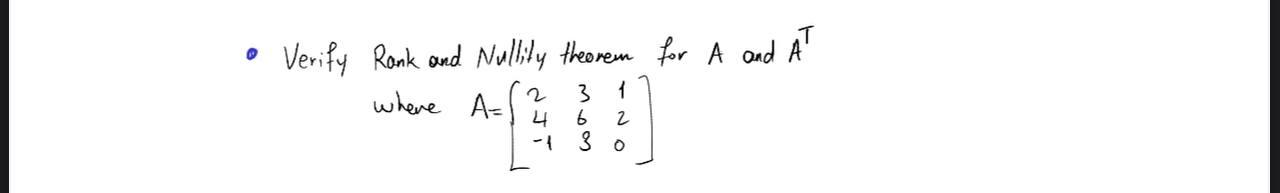 • Verify Rank and Nullity theorem for A and Aᵀ
where A= [ 2 3 1
4 6 2
-1 3 0 ]